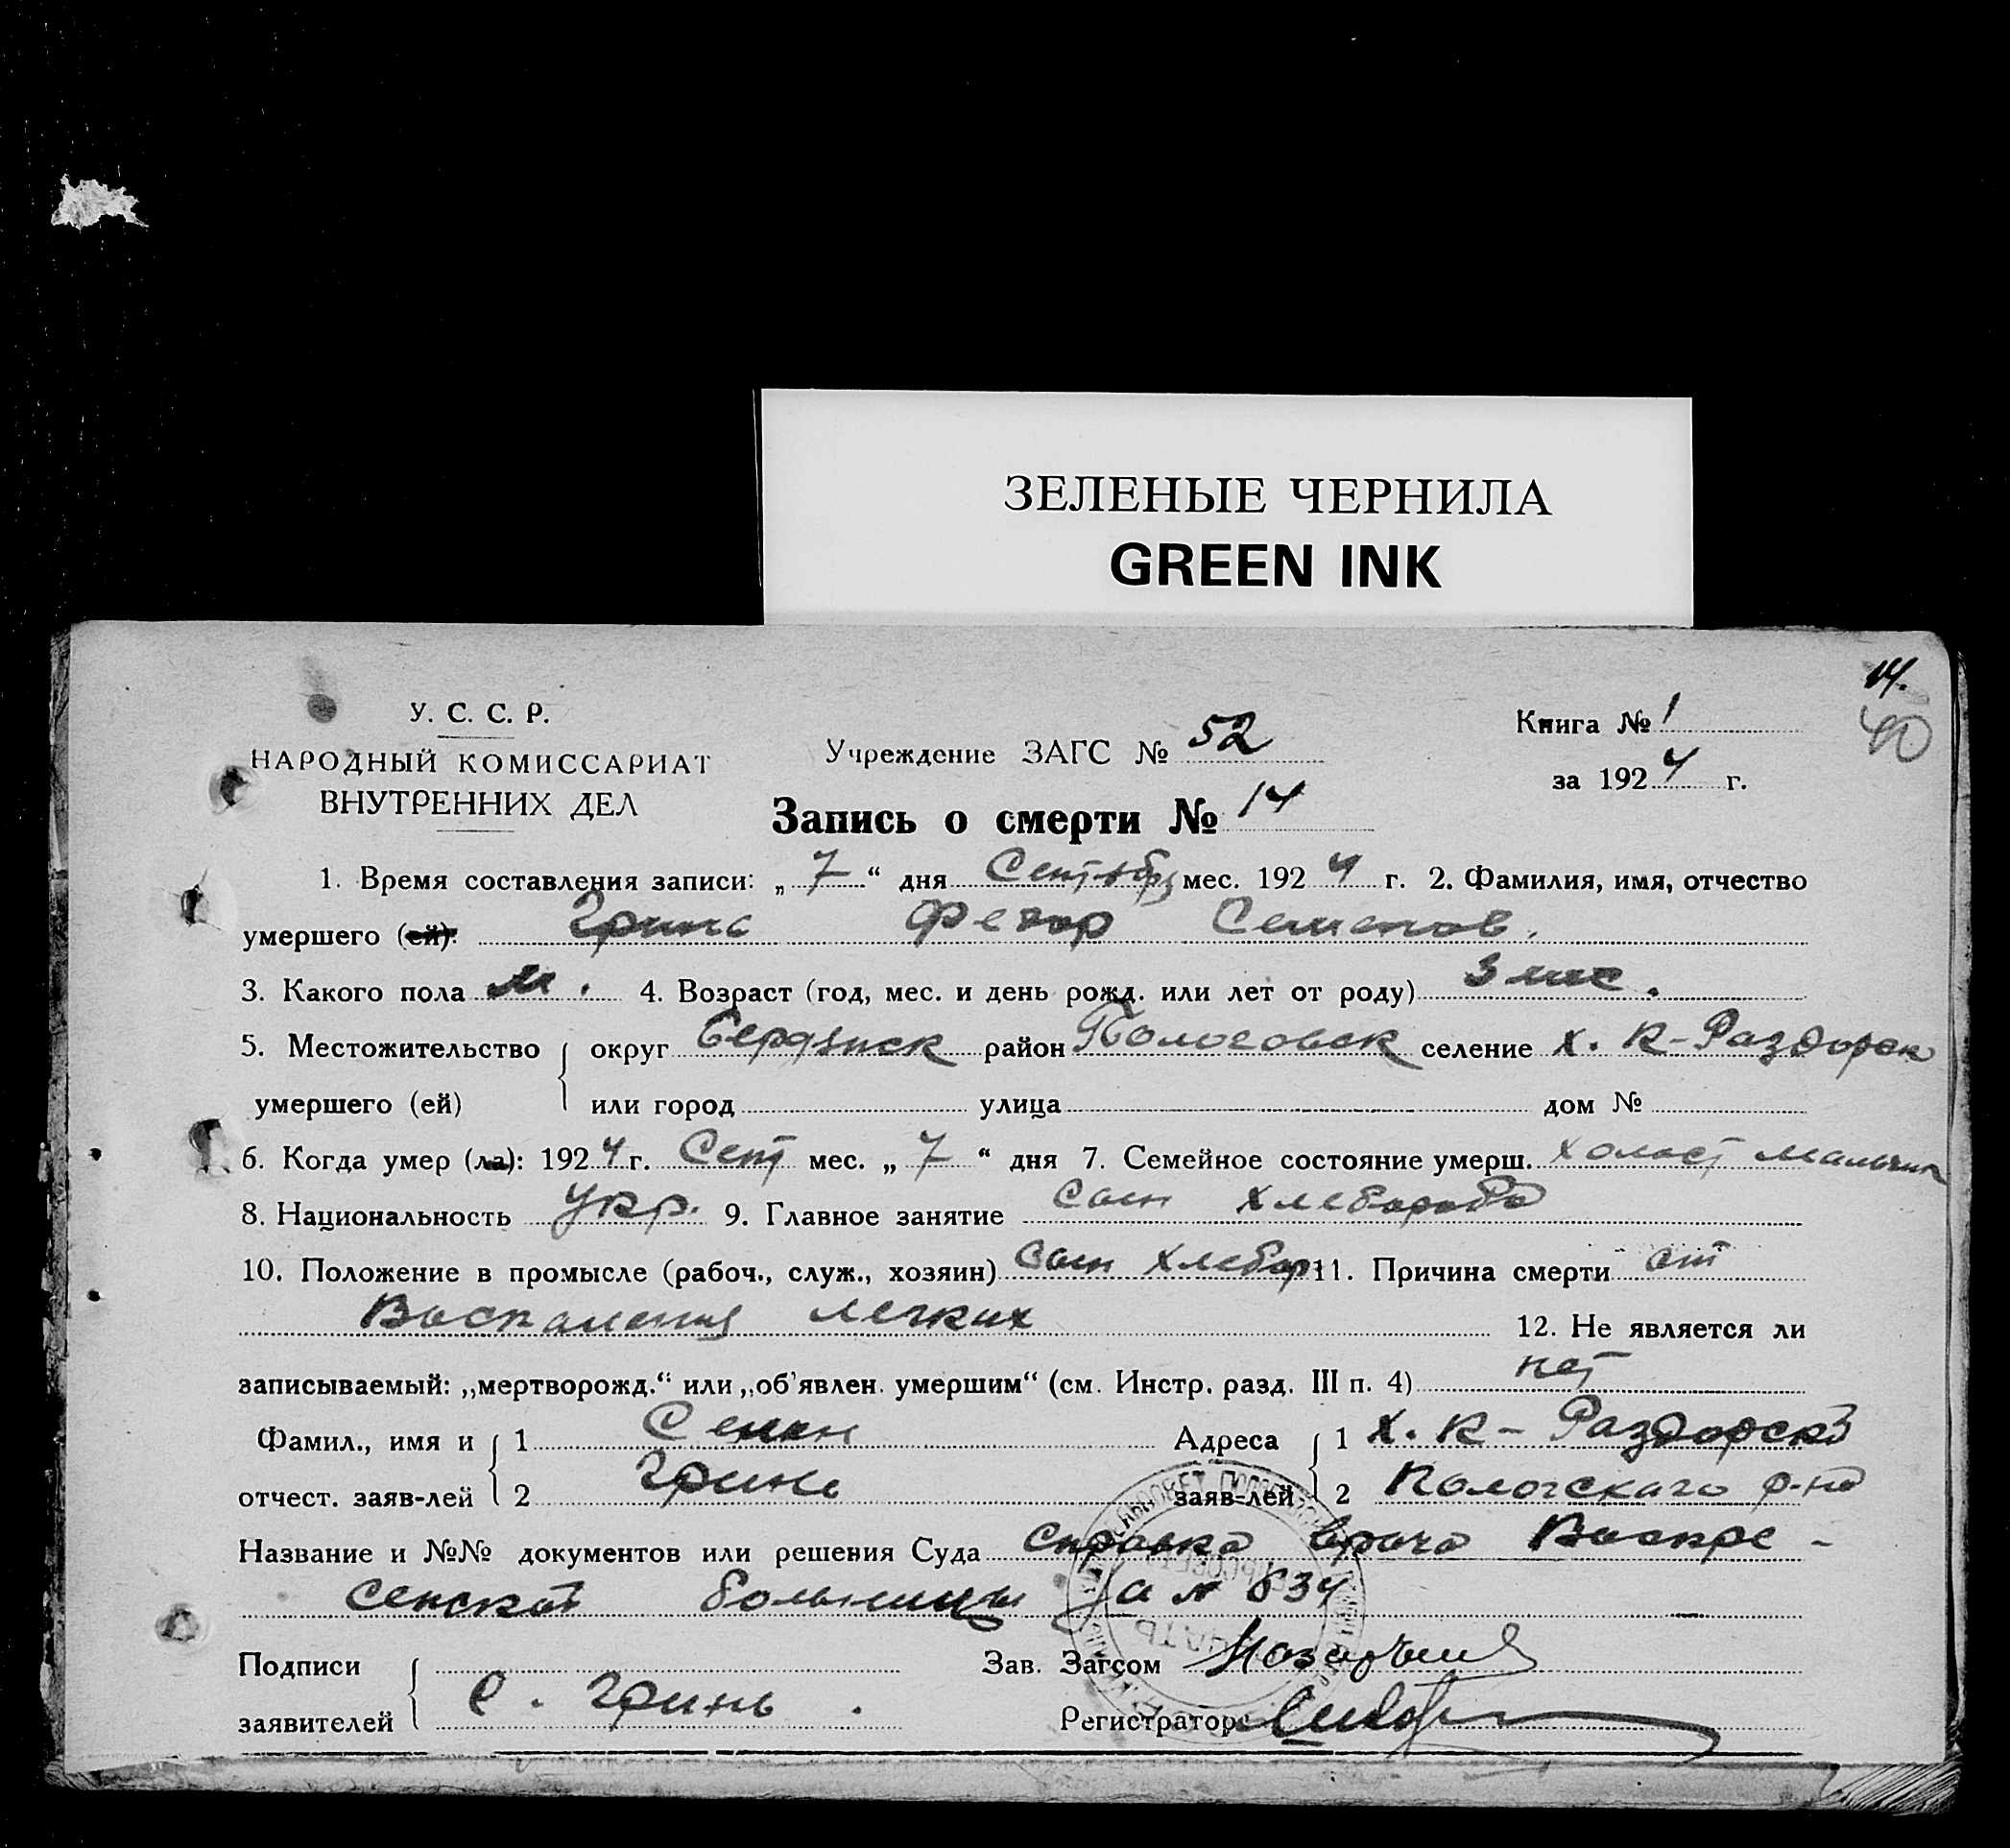 ЗЕЛЕНЫЕ ЧЕРНИЛА
GREEN INK
14.
40
У. С. С. Р.
НАРОДНЫЙ КОМИССАРИАТ
ВНУТРЕННИХ ДЕЛ
Учреждение ЗАГС № 52
Книга № 1
за 1924 г.
Запись о смерти № 14
1. Время составления записи: „7“ дня Сентября мес. 1924 г. 2. Фамилия, имя, отчество
умершего (ей): Гринь Федор Семенов.
3. Какого пола м. 4. Возраст (год, мес. и день рожд. или лет от роду) 3 мес.
5. Местожительство округ Бердянск район Пологовск селение х. К-Раздорск
умершего (ей) или город улица дом №
6. Когда умер (ла): 1924 г. Сент мес. „7“ дня 7. Семейное состояние умерш. холост мальчик
8. Национальность Укр. 9. Главное занятие сын хлебороба
10. Положение в промысле (рабоч., служ., хозяин) сын хлебор 11. Причина смерти от
Воспаления легких 12. Не является ли
записываемый: „мертворожд.“ или „об'явлен. умершим“ (см. Инстр. разд. III п. 4) нет
Фамил., имя и 1 Семен Адреса 1 х. К-Раздорск
отчест. заяв-лей 2 Гринь заяв-лей 2 Пологскаго р-на
Название и №№ документов или решения Суда справка врача Воскре-
сенской больницы за №
Подписи Зав. Загсом
заявителей С. Гринь. Регистратор